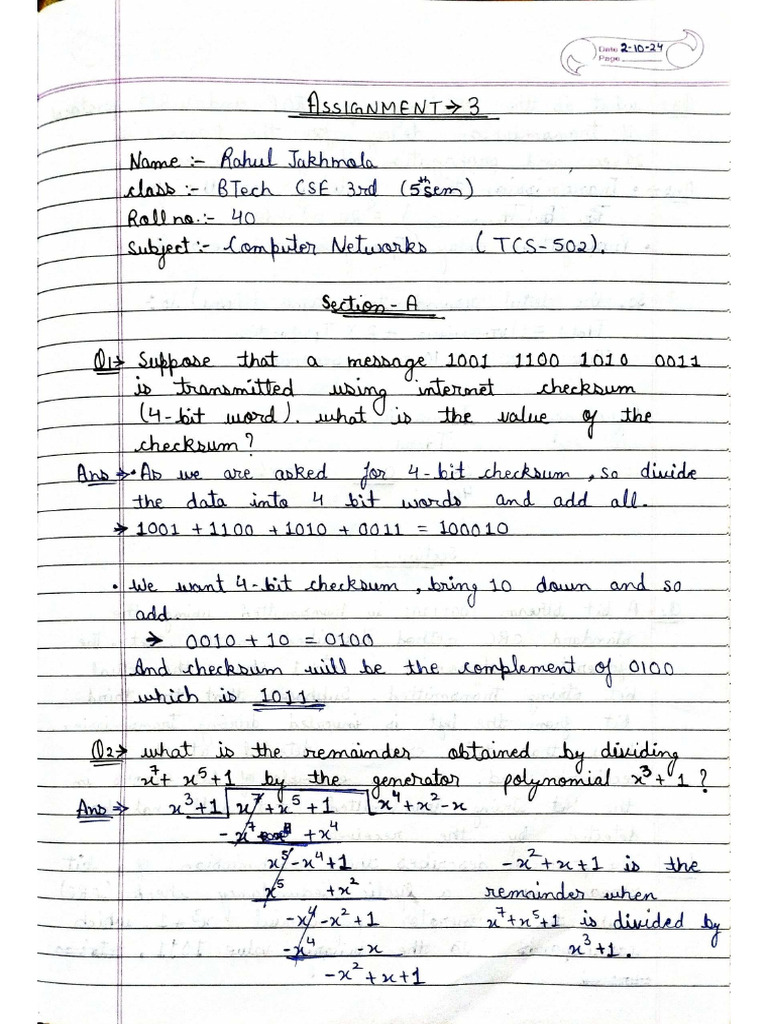 Date 2-10-24
Page
ASSIGNMENT → 3
Name :- Rahul Jakhmola
class :- BTech CSE 3rd (5th sem)
Roll no. :- 40
Subject :- Computer Networks (TCS-502).
Section - A
Q1→ Suppose that a message 1001 1100 1010 0011
is transmitted using internet checksum
(4-bit word). what is the value of the
checksum?
Ans → • As we are asked for 4-bit checksum, so divide
the data into 4 bit words and add all.
→ 1001 + 1100 + 1010 + 0011 = 100010
• We want 4-bit checksum, bring 10 down and so
add
→ 0010 + 10 = 0100
And checksum will be the complement of 0100
which is 1011.
Q2→ what is the remainder obtained by dividing
x⁷ + x⁵ + 1 by the generator polynomial x³ + 1 ?
Ans → x³+1 | x⁷ + x⁵ + 1 | x⁴ + x² - x
- x⁷ + x⁴
x⁵ - x⁴ + 1
x⁵ + x²
- x⁴ - x² + 1
- x⁴ - x
- x² + x + 1
- x² + x + 1 is the
remainder when
x⁷ + x⁵ + 1 is divided by
x³ + 1.